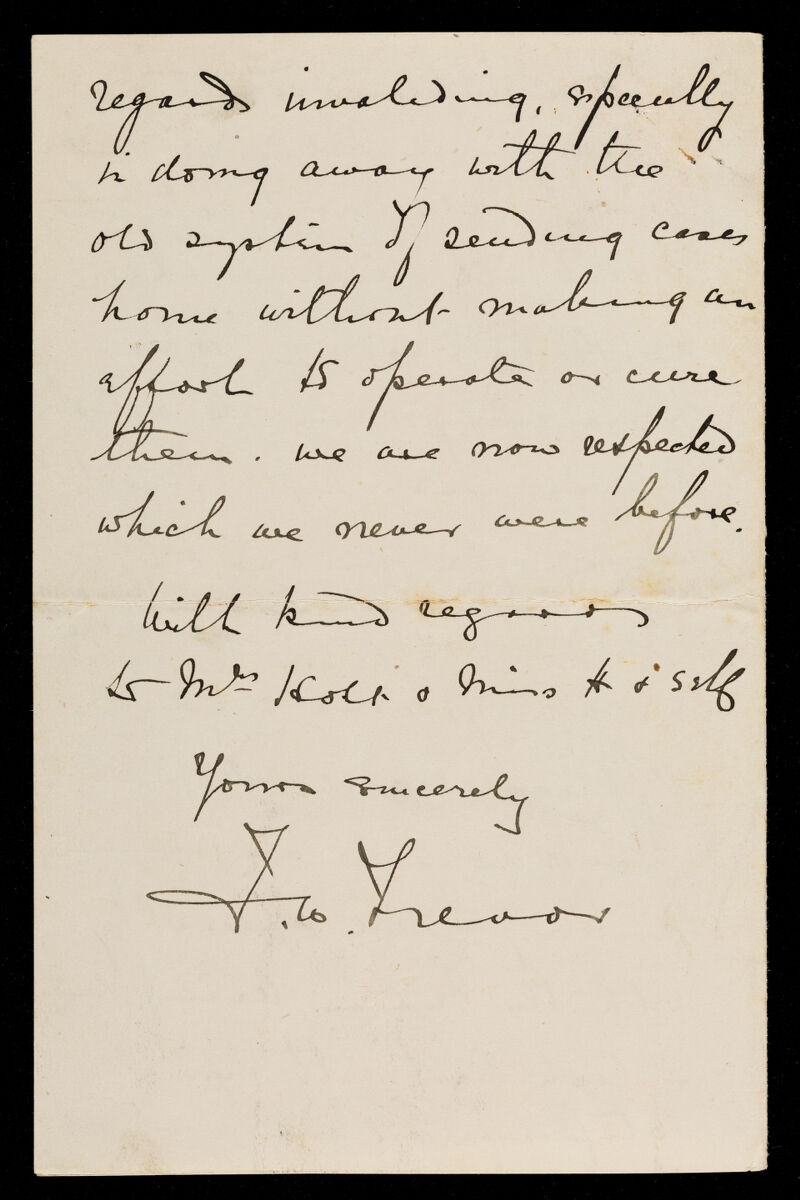 regards invaliding, specially
in doing away with the
old system of sending cases
home without making an
effort to operate or cure
them. we are now respected
which we never were before.
With kind regards
to Mrs Holt & Miss H & self
Yours sincerely
F. W. Trevor